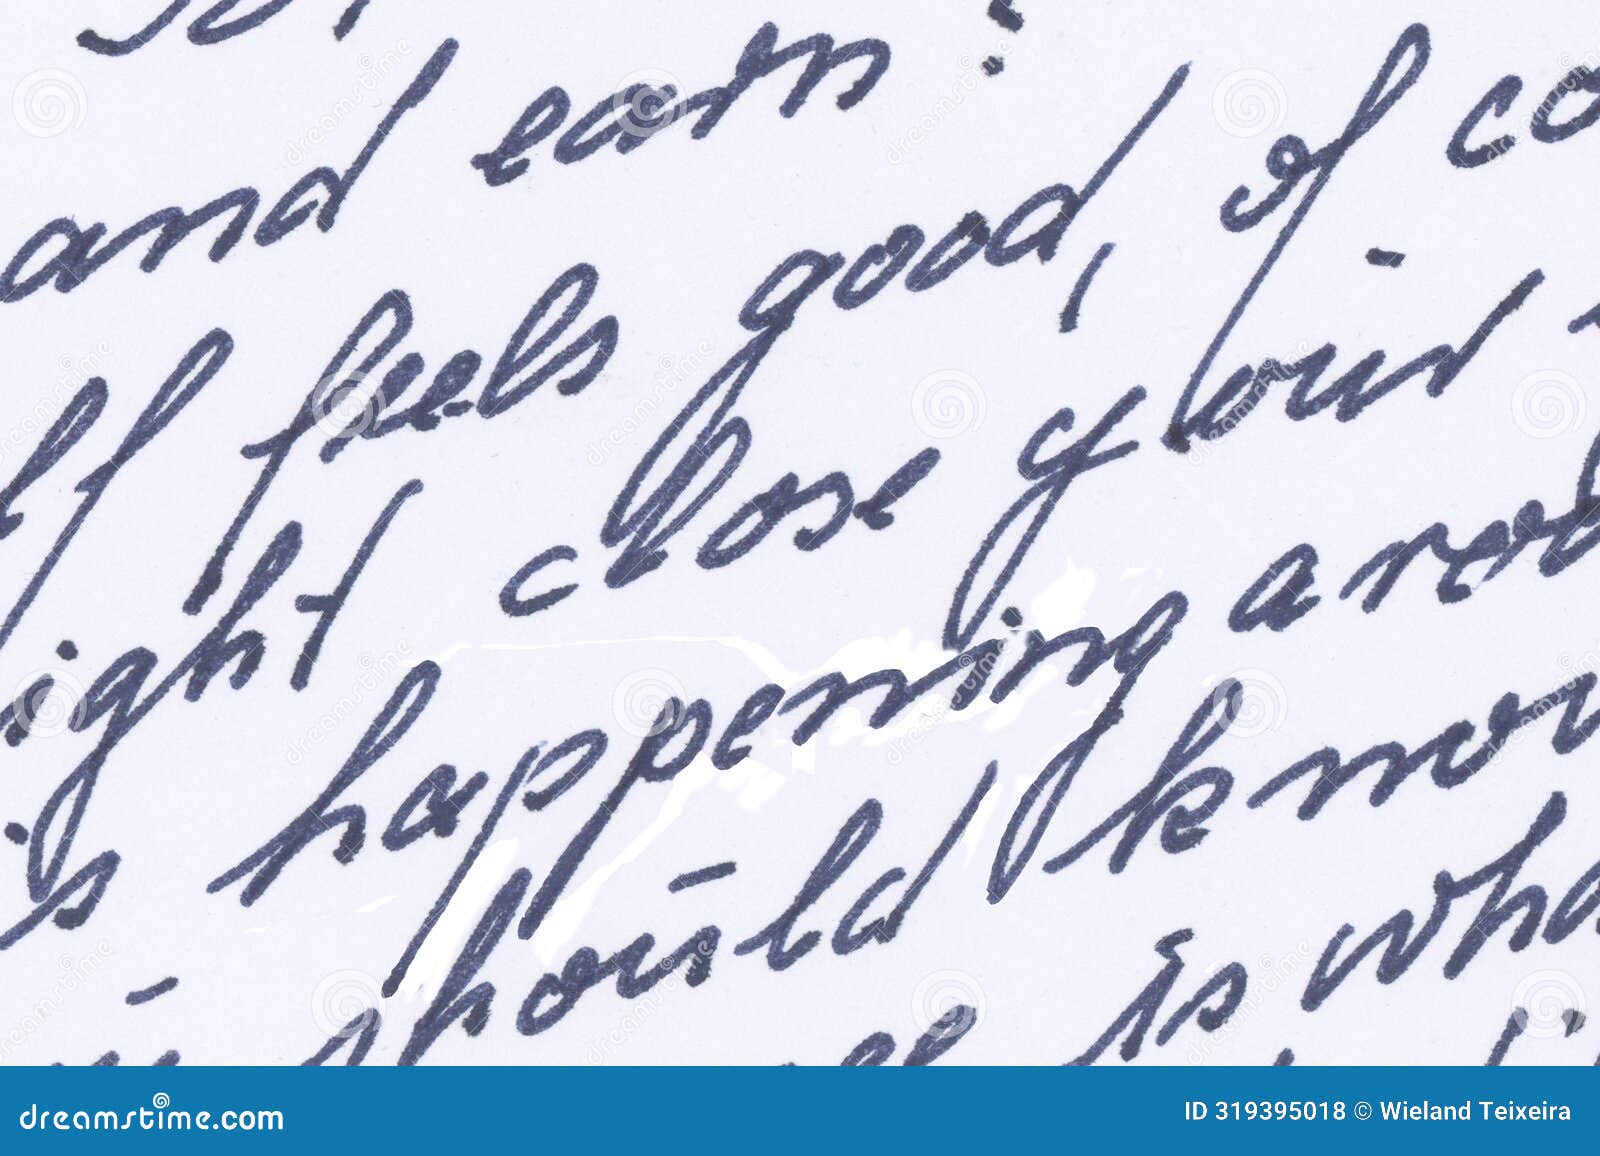 and earn
lf feels good, of co
ight close your
is happening arou
should know
is wha
dreamstime.com
ID 319395018 © Wieland Teixeira